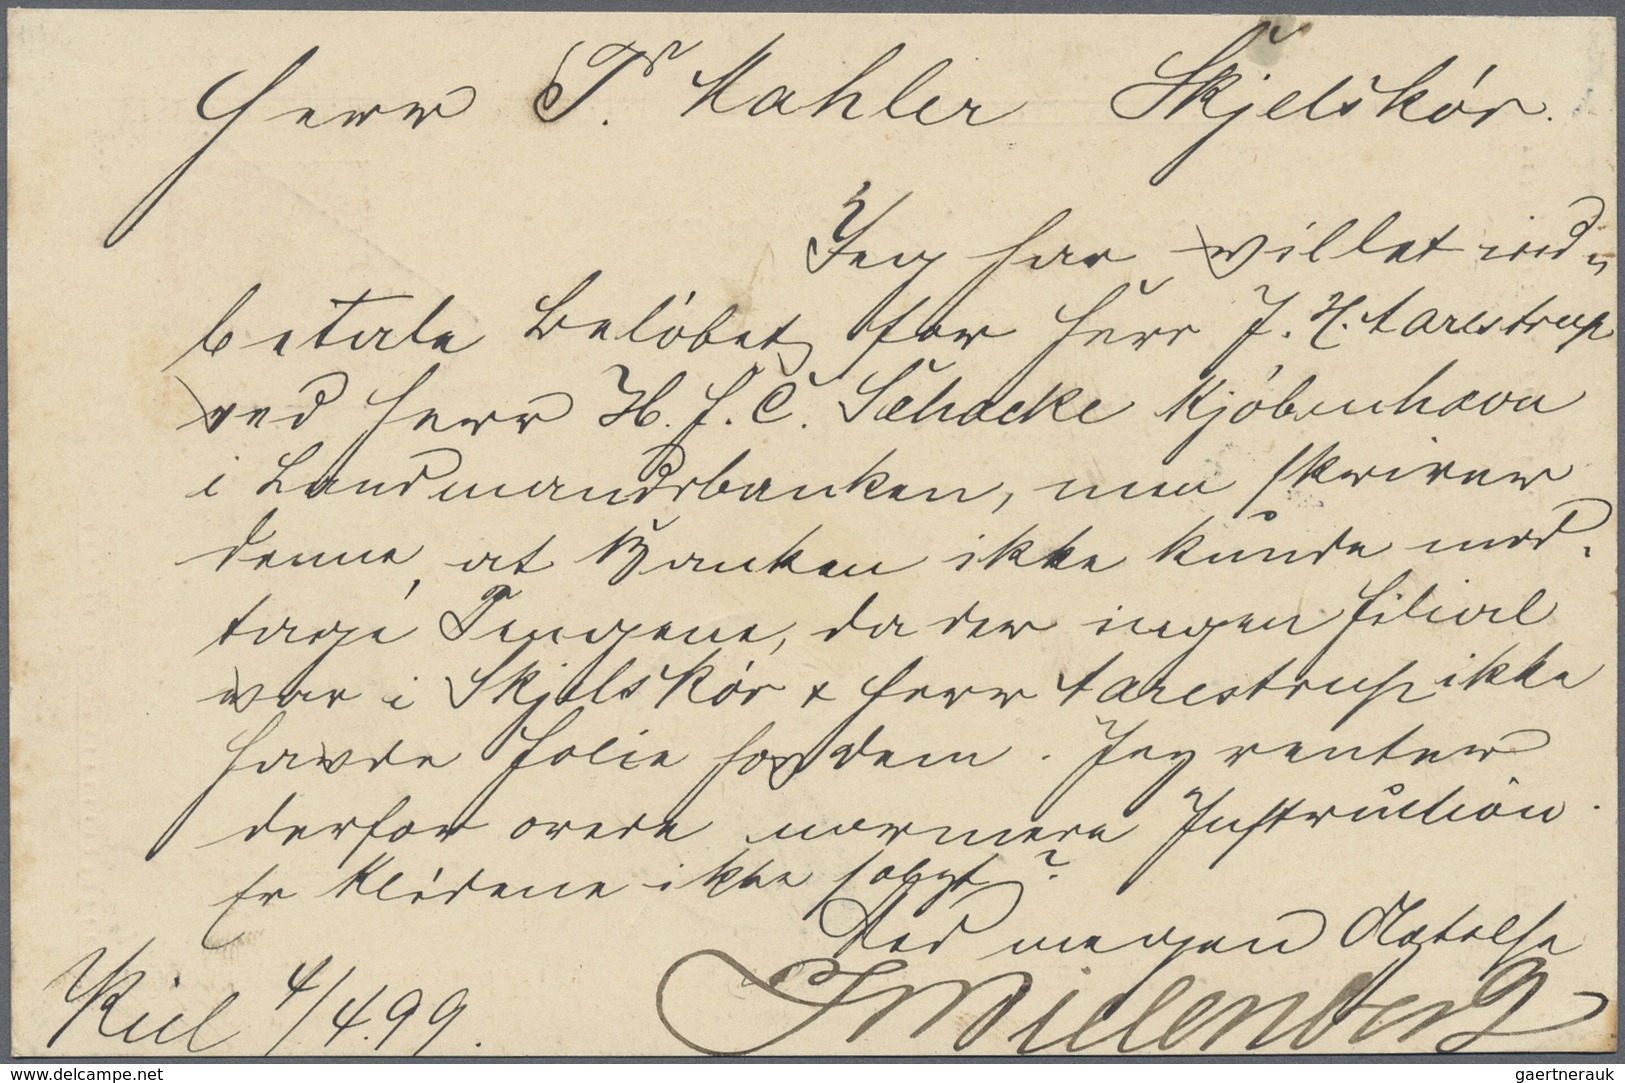 Herr Ts. Mahler Skjelskór.
Jeg har villet ind=
betale Belóbet for Herr J. H. Aarestrup
ved Herr H. F. C. Schacke Kjóbenhavn
i Landmandsbanken, men skriver
denne, at Banken ikke kunde mod=
tage Pengene, da der ingen Filial
var i Skjelskór & Herr Aarestrup ikke
havde Folie hos dem. Jeg venter
derfor Deres nærmere Instruction.
Er Klódene ikke solgt?
Med megen Agtelse
Kiel 4/4.99.
Wielenberg
www.delcampe.net
gaertnerauk